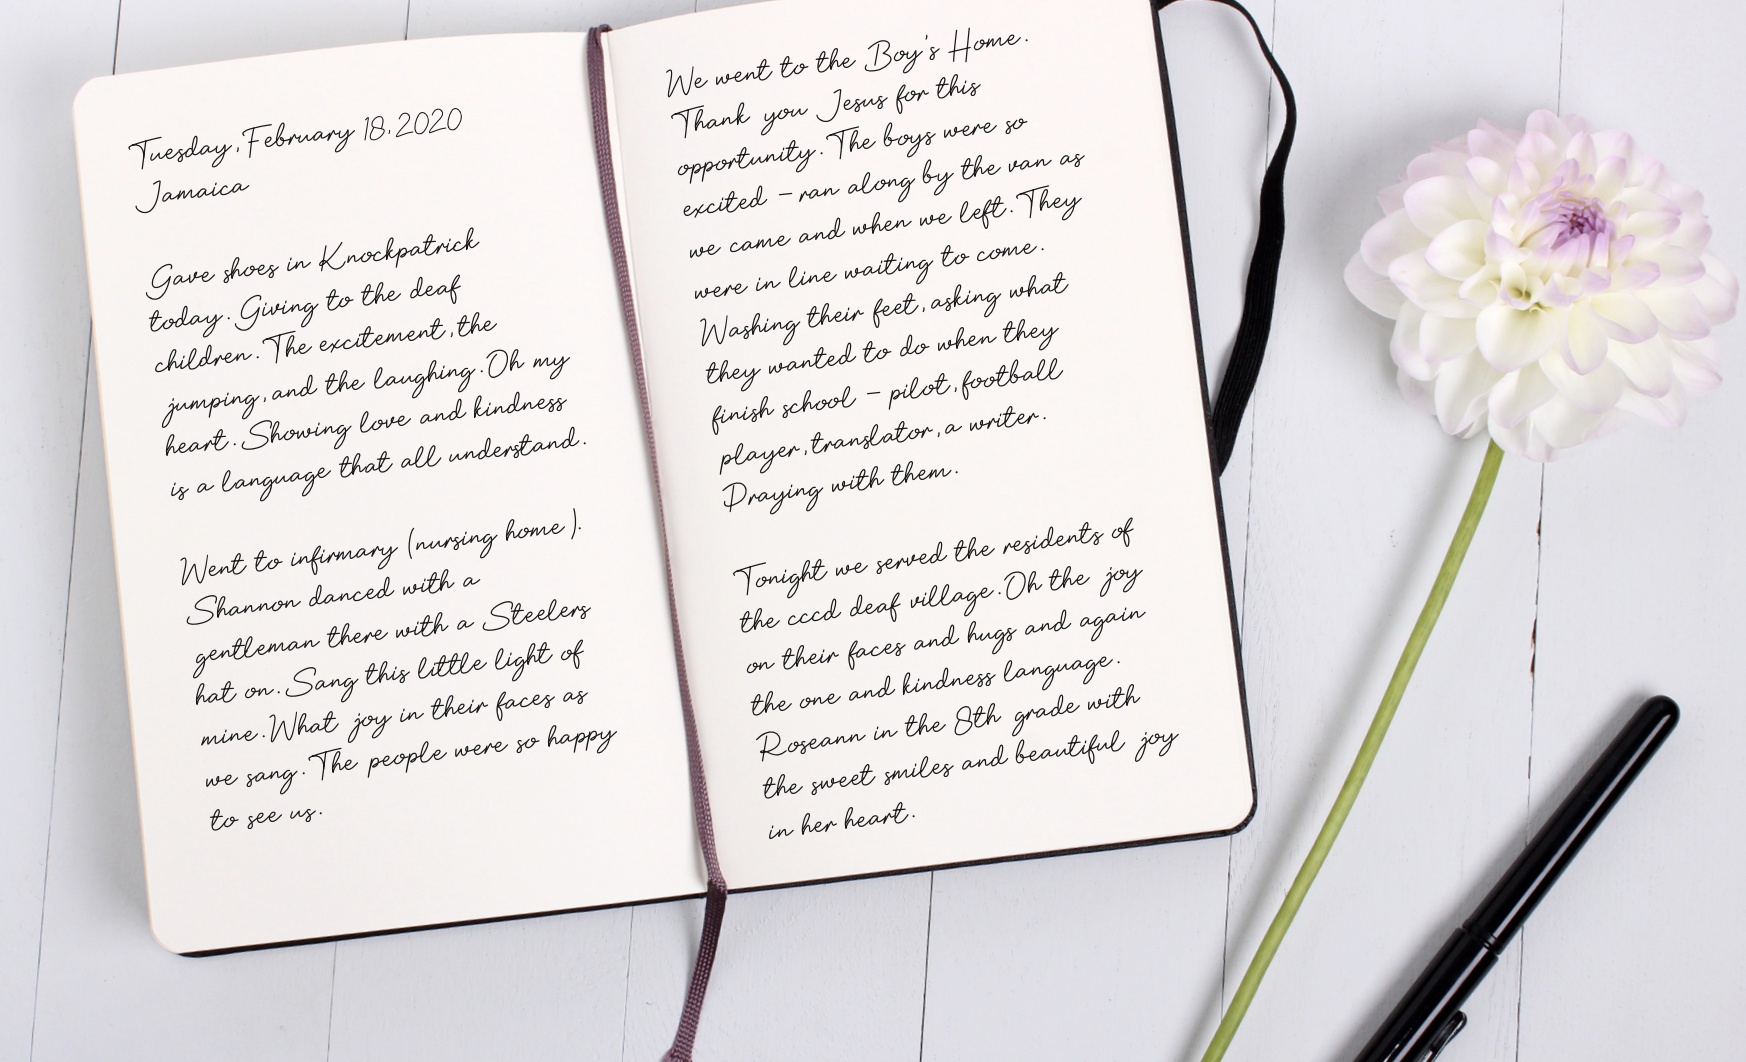 Tuesday, February 18, 2020
Jamaica
Gave shoes in Knockpatrick
today. Giving to the deaf
children. The excitement, the
jumping, and the laughing. Oh my
heart. Showing love and kindness
is a language that all understand.
Went to infirmary (nursing home).
Shannon danced with a
gentleman there with a Steelers
hat on. Sang this little light of
mine. What joy in their faces as
we sang. The people were so happy
to see us.
We went to the Boy's Home.
Thank you Jesus for this
opportunity. The boys were so
excited - ran along by the van as
we came and when we left. They
were in line waiting to come.
Washing their feet, asking what
they wanted to do when they
finish school - pilot, football
player, translator, a writer.
Praying with them.
Tonight we served the residents of
the cccd deaf village. Oh the joy
on their faces and hugs and again
the one and kindness language.
Roseann in the 8th grade with
the sweet smiles and beautiful joy
in her heart.